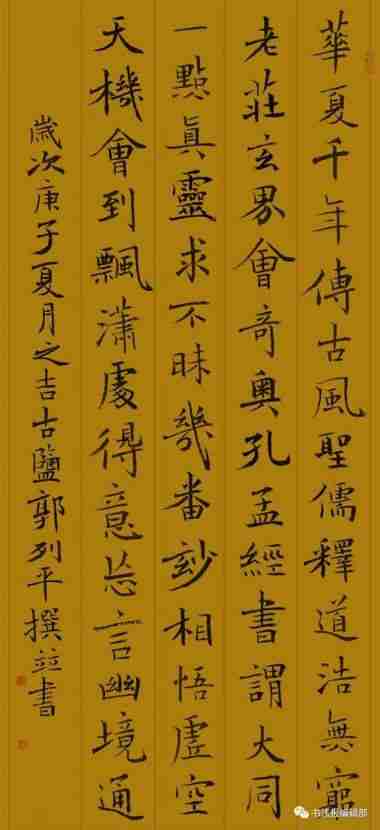 華夏千年傳古風聖儒釋道浩無窮
老莊玄界會奇奧孔孟經書謂大同
一點眞靈求不昧幾番玅相悟虛空
天機會到飄瀟處得意忘言幽境通
歲次庚子夏月之吉古鹽郭列平撰竝書
书法报编辑部